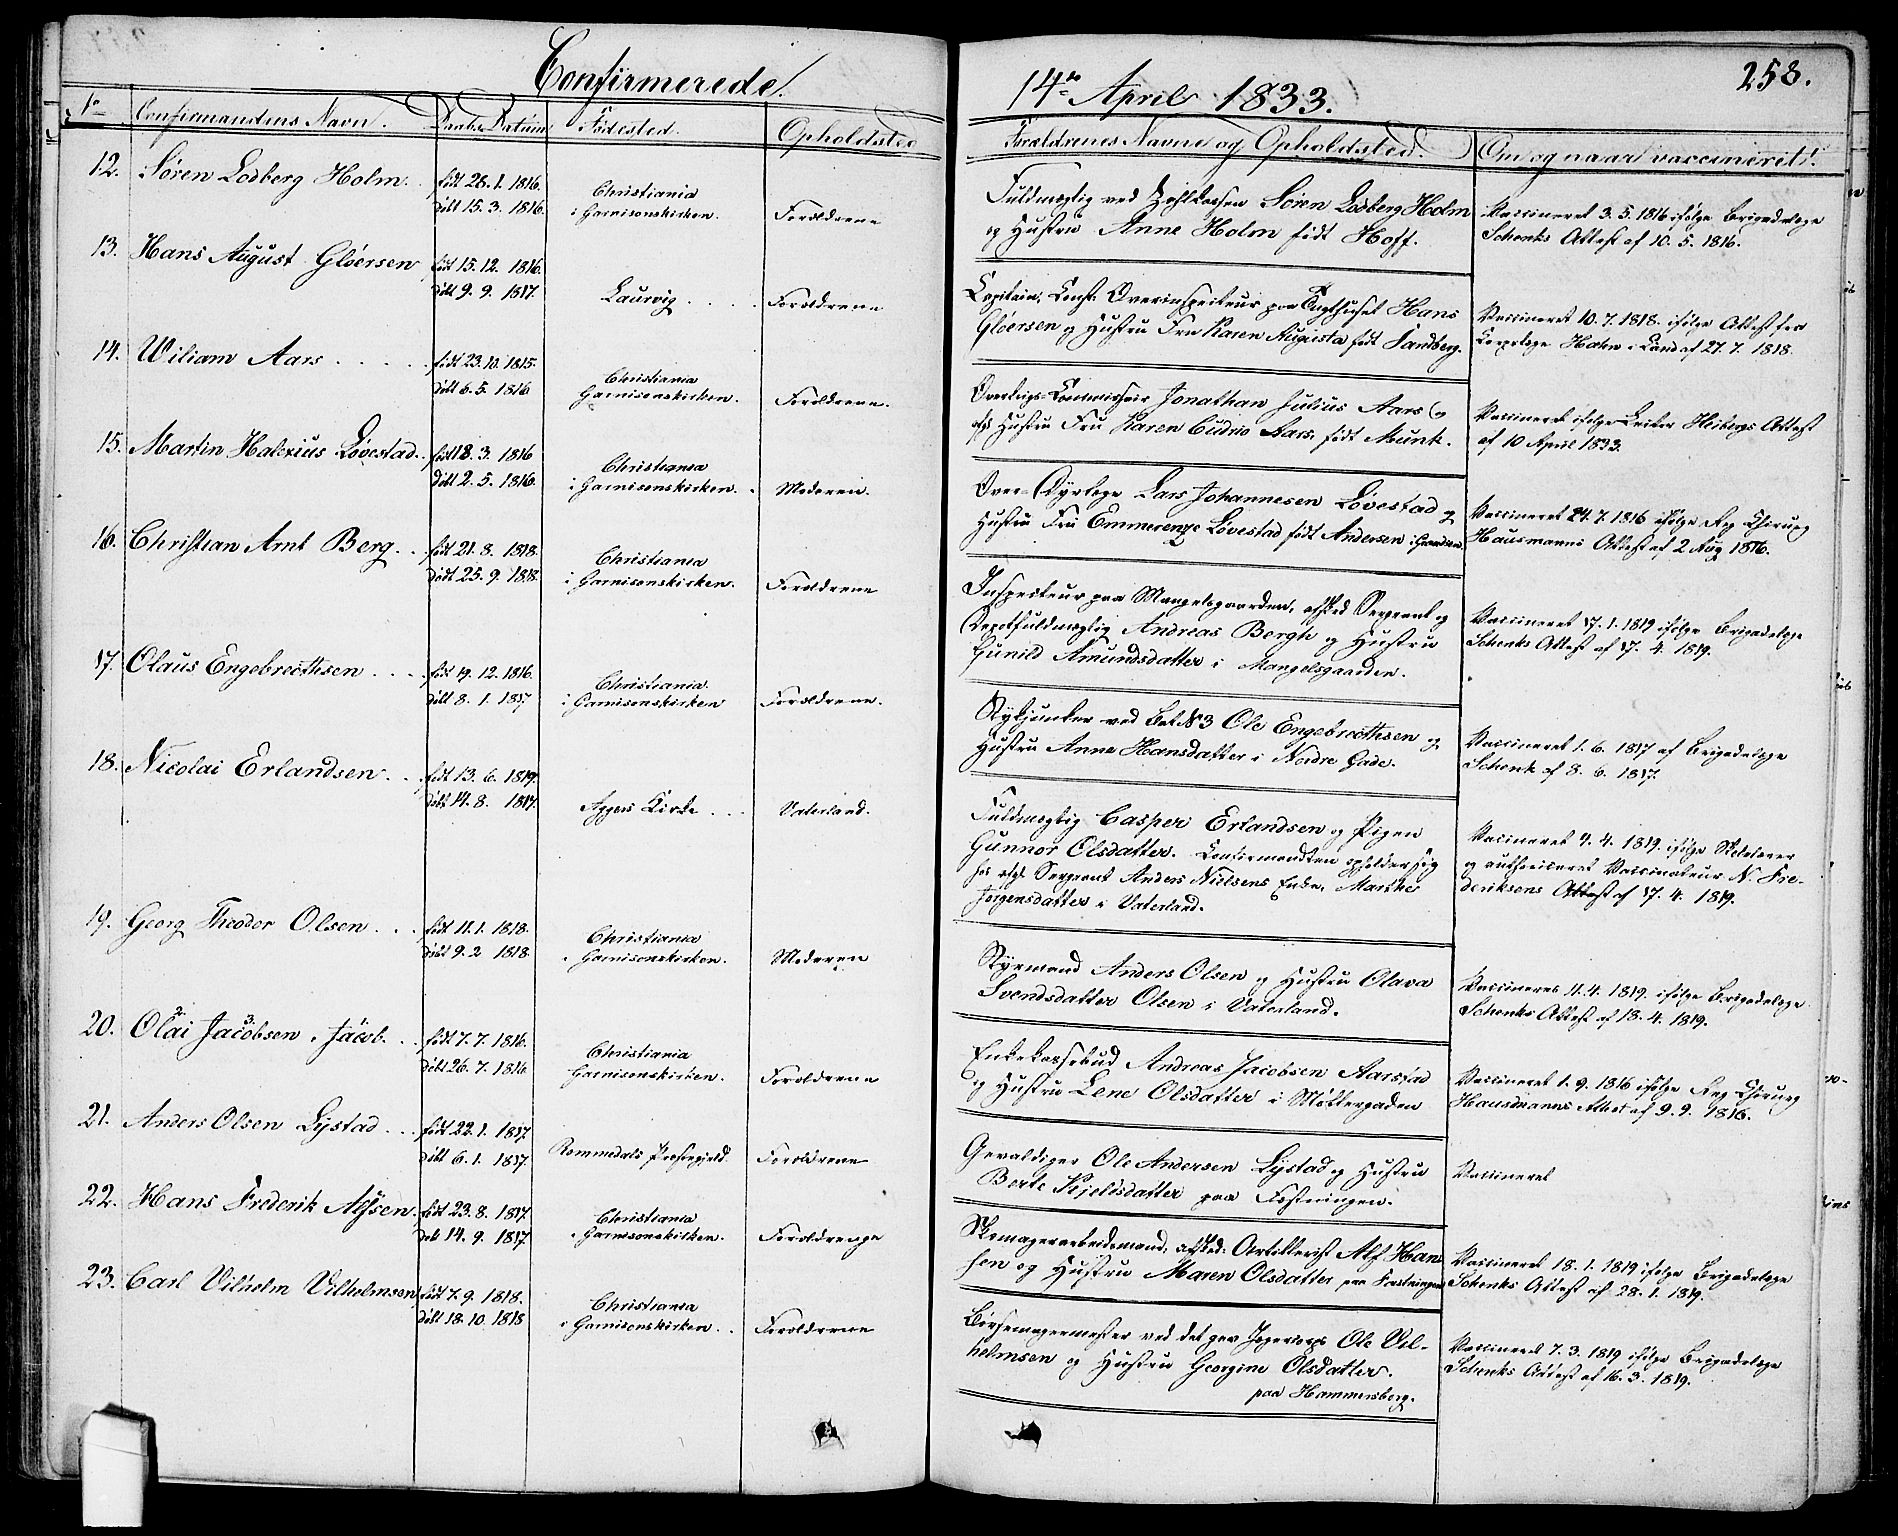 Confirmerede
No Confirmandens Navn. Daabs Datum Fødested. Opholdsted
12. Søren Lodberg Holm. født 28. 1. 1816. Christiania
døbt 15. 3. 1816. i Garnisonskirken. Forældrene
13. Hans August Gløersen født 15. 12. 1816.
døbt 9. 9. 1817. Laurvig Forældrene
14. Wiliam Aars født 23. 10. 1815. Christiania
døbt 6. 5. 1816 Garnisonskirken. Forældrene.
15. Martin Halexius Løvestad født 18. 3. 1816 Christiania
døbt 2. 5. 1816. i Garnisonskirken. Moderen.
16. Christian Arnt Berg født 21. 8. 1818. Christiania
døbt 25. 9. 1818. i Garnisonskirken. Forældrene
17. Olaus Engebrecthsen født 19. 12. 1816. Christiania
døbt 8. 1. 1817 i Garnisonskirken Forældrene.
18. Nicolai Erlandsen født 13. 6. 1819.
døbt 14. 8. 1817. Aggers Kirke Vaterland.
19. Georg Theodor Olsen født 11. 1. 1818. Christiania
døbt 9. 2 1818. i Garnisonskirken. Moderen
20. Olai Jacobsen, Jacob. født 7. 7. 1816. Christiania
døbt 26. 7. 1816 Garnisonskirken. Forældrene
21. Anders Olsen Lystad født 22. 1. 1817.
døbt 6. 1. 1817. Rommedals Præstegjeld Forældrene
22. Hans Frederik Alfsen. født 23. 8. 1817. Christiania
døbt 14. 9. 1817. i Garnisonskirken. Forældrene
23. Carl Vilhelm Vilhelmsen født 7. 9. 1818. Christiania
døbt 18. 10. 1818 i Garnisonskirken Forældrene
14de April 1833. 258.
Forældrenes Navne og Opholdsted. Om og naar vaccineret?
Fuldmægtig ved Zahlkassen Søren Lodberg Holm
og Hustru Anne Holm født Hoff.
Vaccineret 3. 5. 1816 ifølge Brigadelæge
Schenks Attest af 10. 5. 1816.
Capitain, Const. Overinspecteur paa Tugthuset Hans
Gløersen og Hustru Fru Karen Augusta født Sandberg.
Vaccineret 10. 7. 1818. ifølge Attest fra
Corpslæge Hahn i Land af 27. 7. 1818.
Overkrigs-Commissair Jonathan Julius Aars og
Hustru Fru Karen Aars. født Munk.
Vaccineret ifølge Heibergs Attest
af 10 April 1833.
Over-Dyrlæge Lars Johannesen Løvestad og
Hustru Fru Emmerenze Løvestad født Andersen
Vaccineret 24. 7. 1816 ifølge Reg Chirurg
Hausmanns Attest af 2 Aug 1816.
Inspecteur paa Mangelsgaarden, afsked Sergeant og
Depotfuldmægtig Andreas Bergh og Hustru
Gunild Amundsdatter i Mangelsgaarden.
Vaccineret 17. 1. 1819 ifølge Brigadelæge
Schenks Attest af 17. 4. 1819.
Stykjunker ved Bat. No 3 Ole Engebrecthsen og
Hustru Anne Hansdatter i Nordre Gade.
Vaccineret 1. 6. 1817 af Brigadelæge
Schenk af 8. 6. 1817.
Fuldmægtig Casper Erlandsen og Pigen
Gunnor Olsdatter. Confirmanden opholder sig
hos Sergeant Anders Nielsens Enke, Marthe
Jørgensdatter i Vaterland.
Vaccineret 4. 4. 1819. ifølge Skolelærer
og authoriseret Vaccinateur N. Fre-
deriksens Attest af 17. 4. 1819.
Styrmand Anders Olsen og Hustru Olava
Svendsdatter Olsen i Vaterland.
Vaccineret 11. 4. 1819. ifølge Brigadelæge
Schenks Attest af 18. 4. 1819.
Enkekassebud Andreas Jacobsen Aarstad
og Hustru Lene Olsdatter i Møllergaden
Vaccineret 1. 9. 1816 ifølge Reg Chirurg
Hausmanns Attest af 9. 9. 1816.
Gevaldiger Ole Andersen Lystad og Hustru
Berte Kjeldsdatter paa Fæstningen.
Vaccineret
Skomagerarbeidsmand, afsked: Artillerist Alf Han
sen og Hustru Maren Olsdatter paa Fæstningen
Vaccineret 18. 1. 1819 ifølge Brigadelæge
Schenks Attest af 28. 1. 1819.
Bøssemagermester ved det Jægercorps Ole Vil-
helmsen og Hustru Georgine Olsdatter.
paa Hammersborg.
Vaccineret 7. 3. 1819 ifølge Brigadelæge
Schenks Attest af 16. 3. 1819.